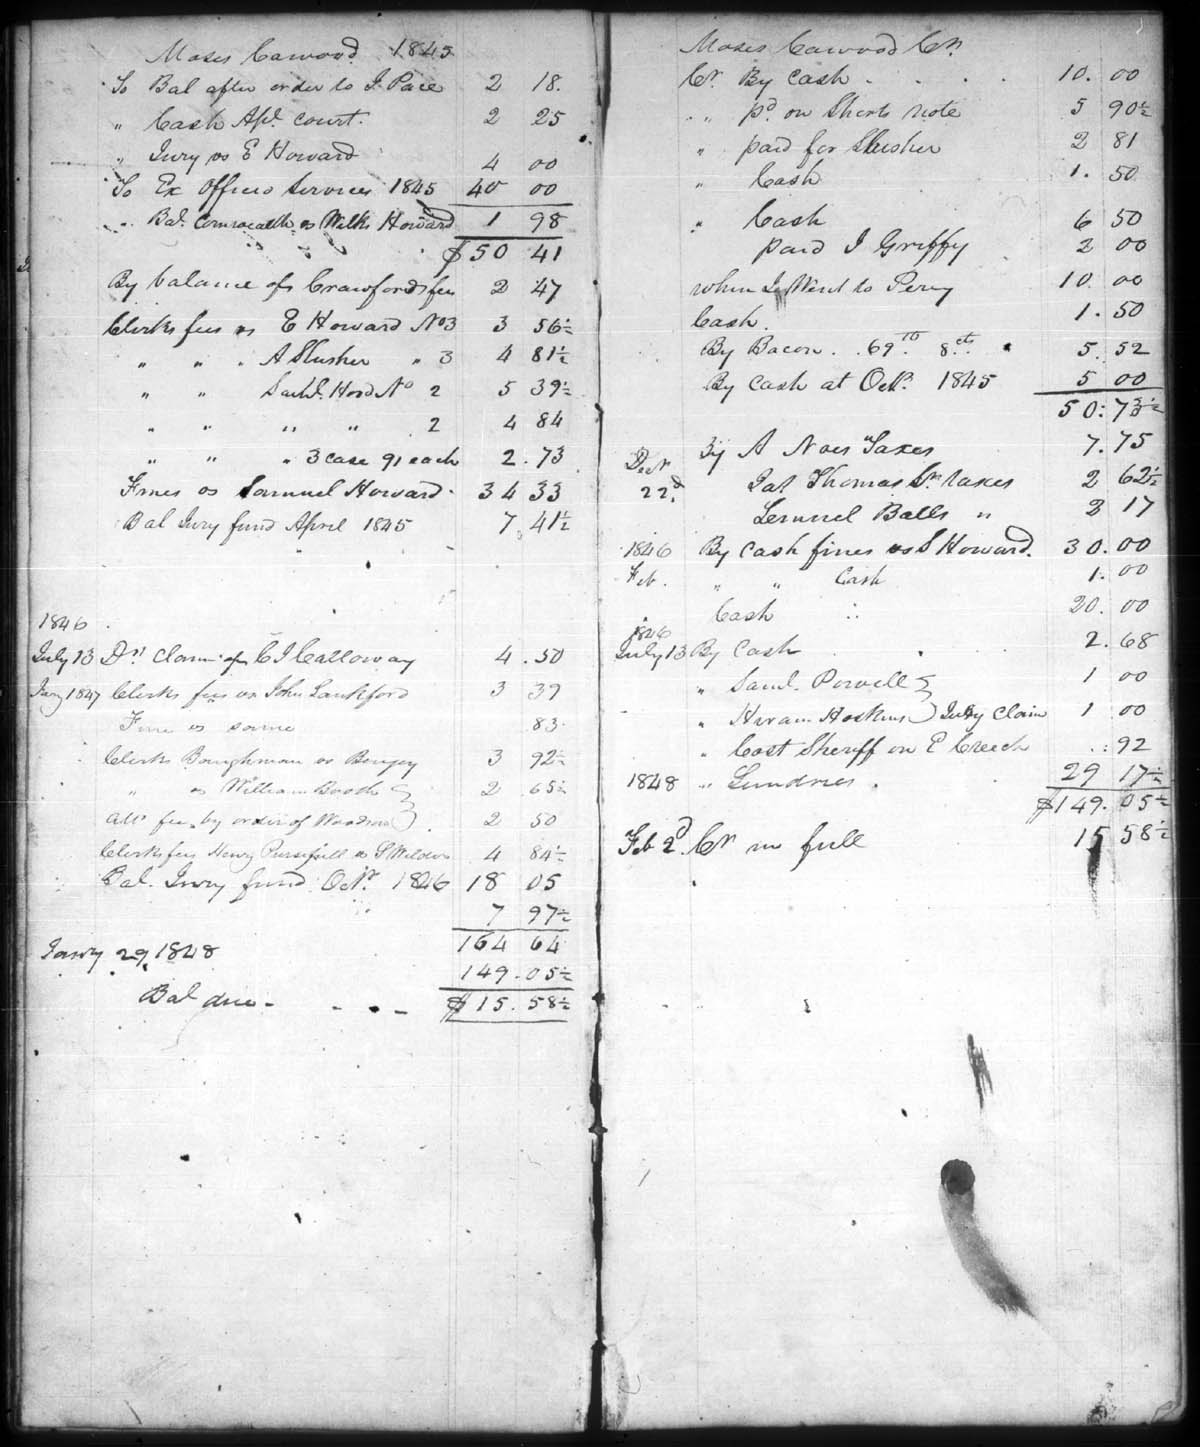 Moses Cawood 1845
To Bal after order to J. Pace 2 18.
" Cash Apl. court. 2 25
" Jury vs E Howard 4 00
To Ex Officio Services 1845 40 00
" Bal. Comwealth vs Wilks Howard 1 98
$50 41
By balance of Crawfords fee 2 47
Clerks fees vs E Howard No 3 3 56½
" " " A Slusher " 3 4 81½
" " Howd No 2 5 39½
" " " " 2 4 84
" " " 3 case 91 each 2.73
Fines vs Samuel Howard. 34 33
Bal Jury fund April 1845 7.41½
1846
July 13 Dr claim of C J Calloway 4.50
Jany 1847 Clerks fees vs John Lankford 3 39
Fine vs same .83
Clerks Baughman vs Bengey 3 92½
" vs William Brock 2 65½
Att. fee by order of Woodson 2 50
Clerks fees Henry Pursifull vs S Wilder 4 84½
Bal. Jury fund Octr. 1846 18 05
7 97½
164 64
Jany 29, 1848 149.05½
Bal due - $15.58½
Moses Cawood Cr.
Cr. By Cash 10.00
" pd. on Shorts note 5 90½
" paid for Slusher 2 81
" Cash 1.50
" Cash 6 50
paid J Griffy 2 00
when I Went to Perry 10.00
Cash. 1.50
By Bacon. 69 lb. 8 ct. 5.52
By Cash at Octr. 1845 5 00
50:73½
By A Noes Taxes 7.75
Decr 22d. Thomas Sr. taxes 2 62½
Lemuel Balls " 2 17
1846 By Cash fines vs S Howard. 30.00
Feb. " " Cash 1.00
Cash " 20.00
1846
July 13 By Cash 2.68
" Saml. Powell 1 00
" Hiram Hoskins Jury Claim 1 00
" Cost Sheriff on E Creech .:92
1848 " Sundries. 29 17½
$149.05½
Feb 2d. Cr in full 15 58½